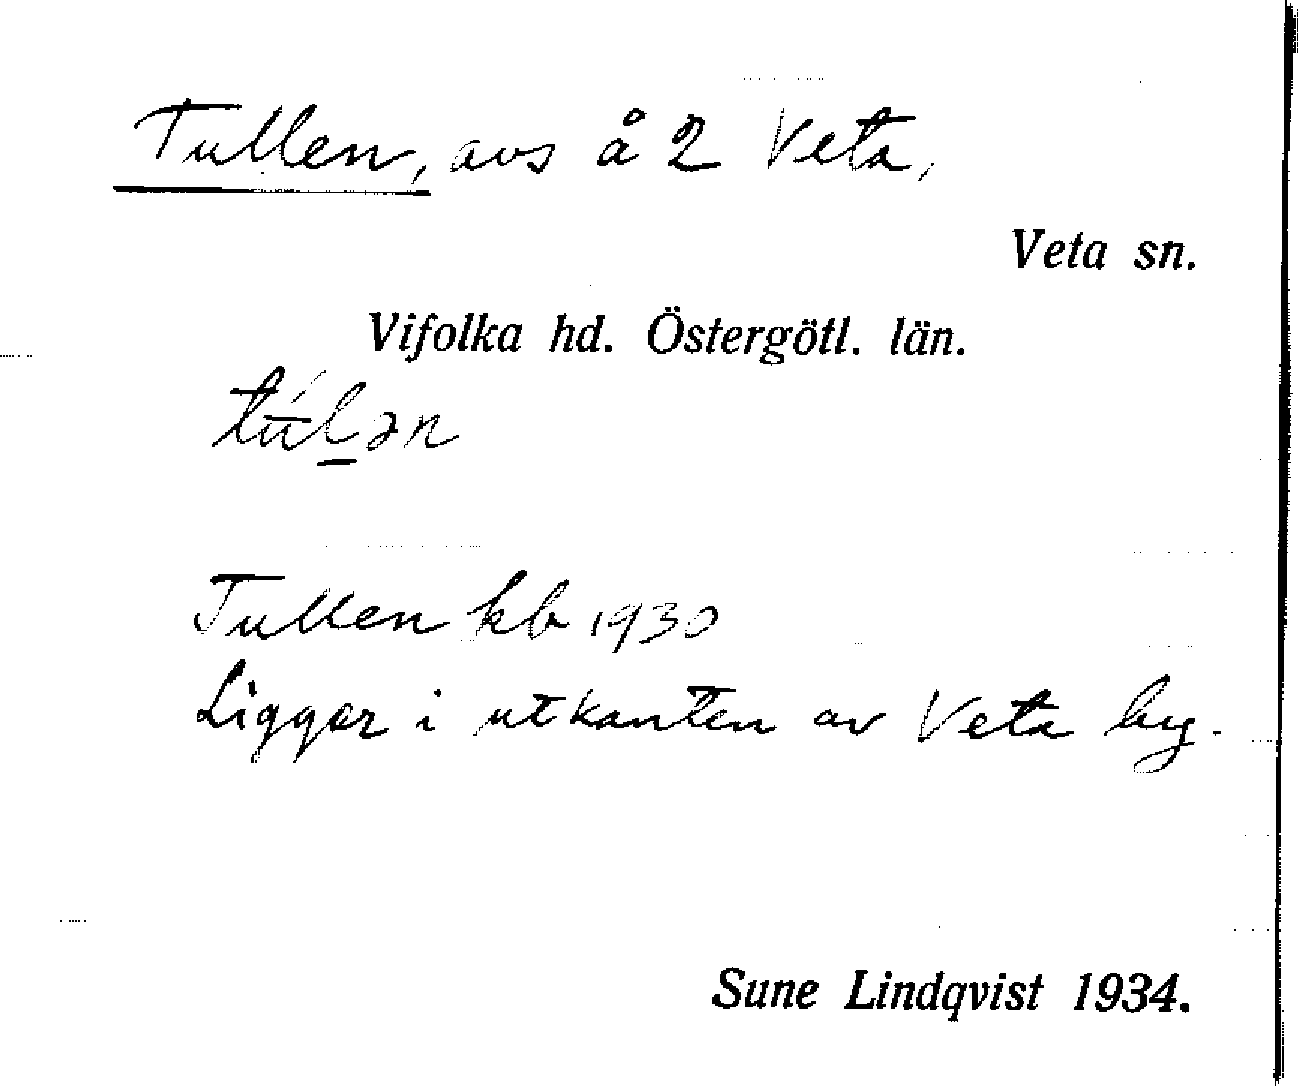 Tullen, avs å 2 Veta,
Veta sn.
Vifolka hd. Östergötl. län.
Tullen kb 1930
Ligger i utkanten av Veta by.
Sune Lindqvist 1934.